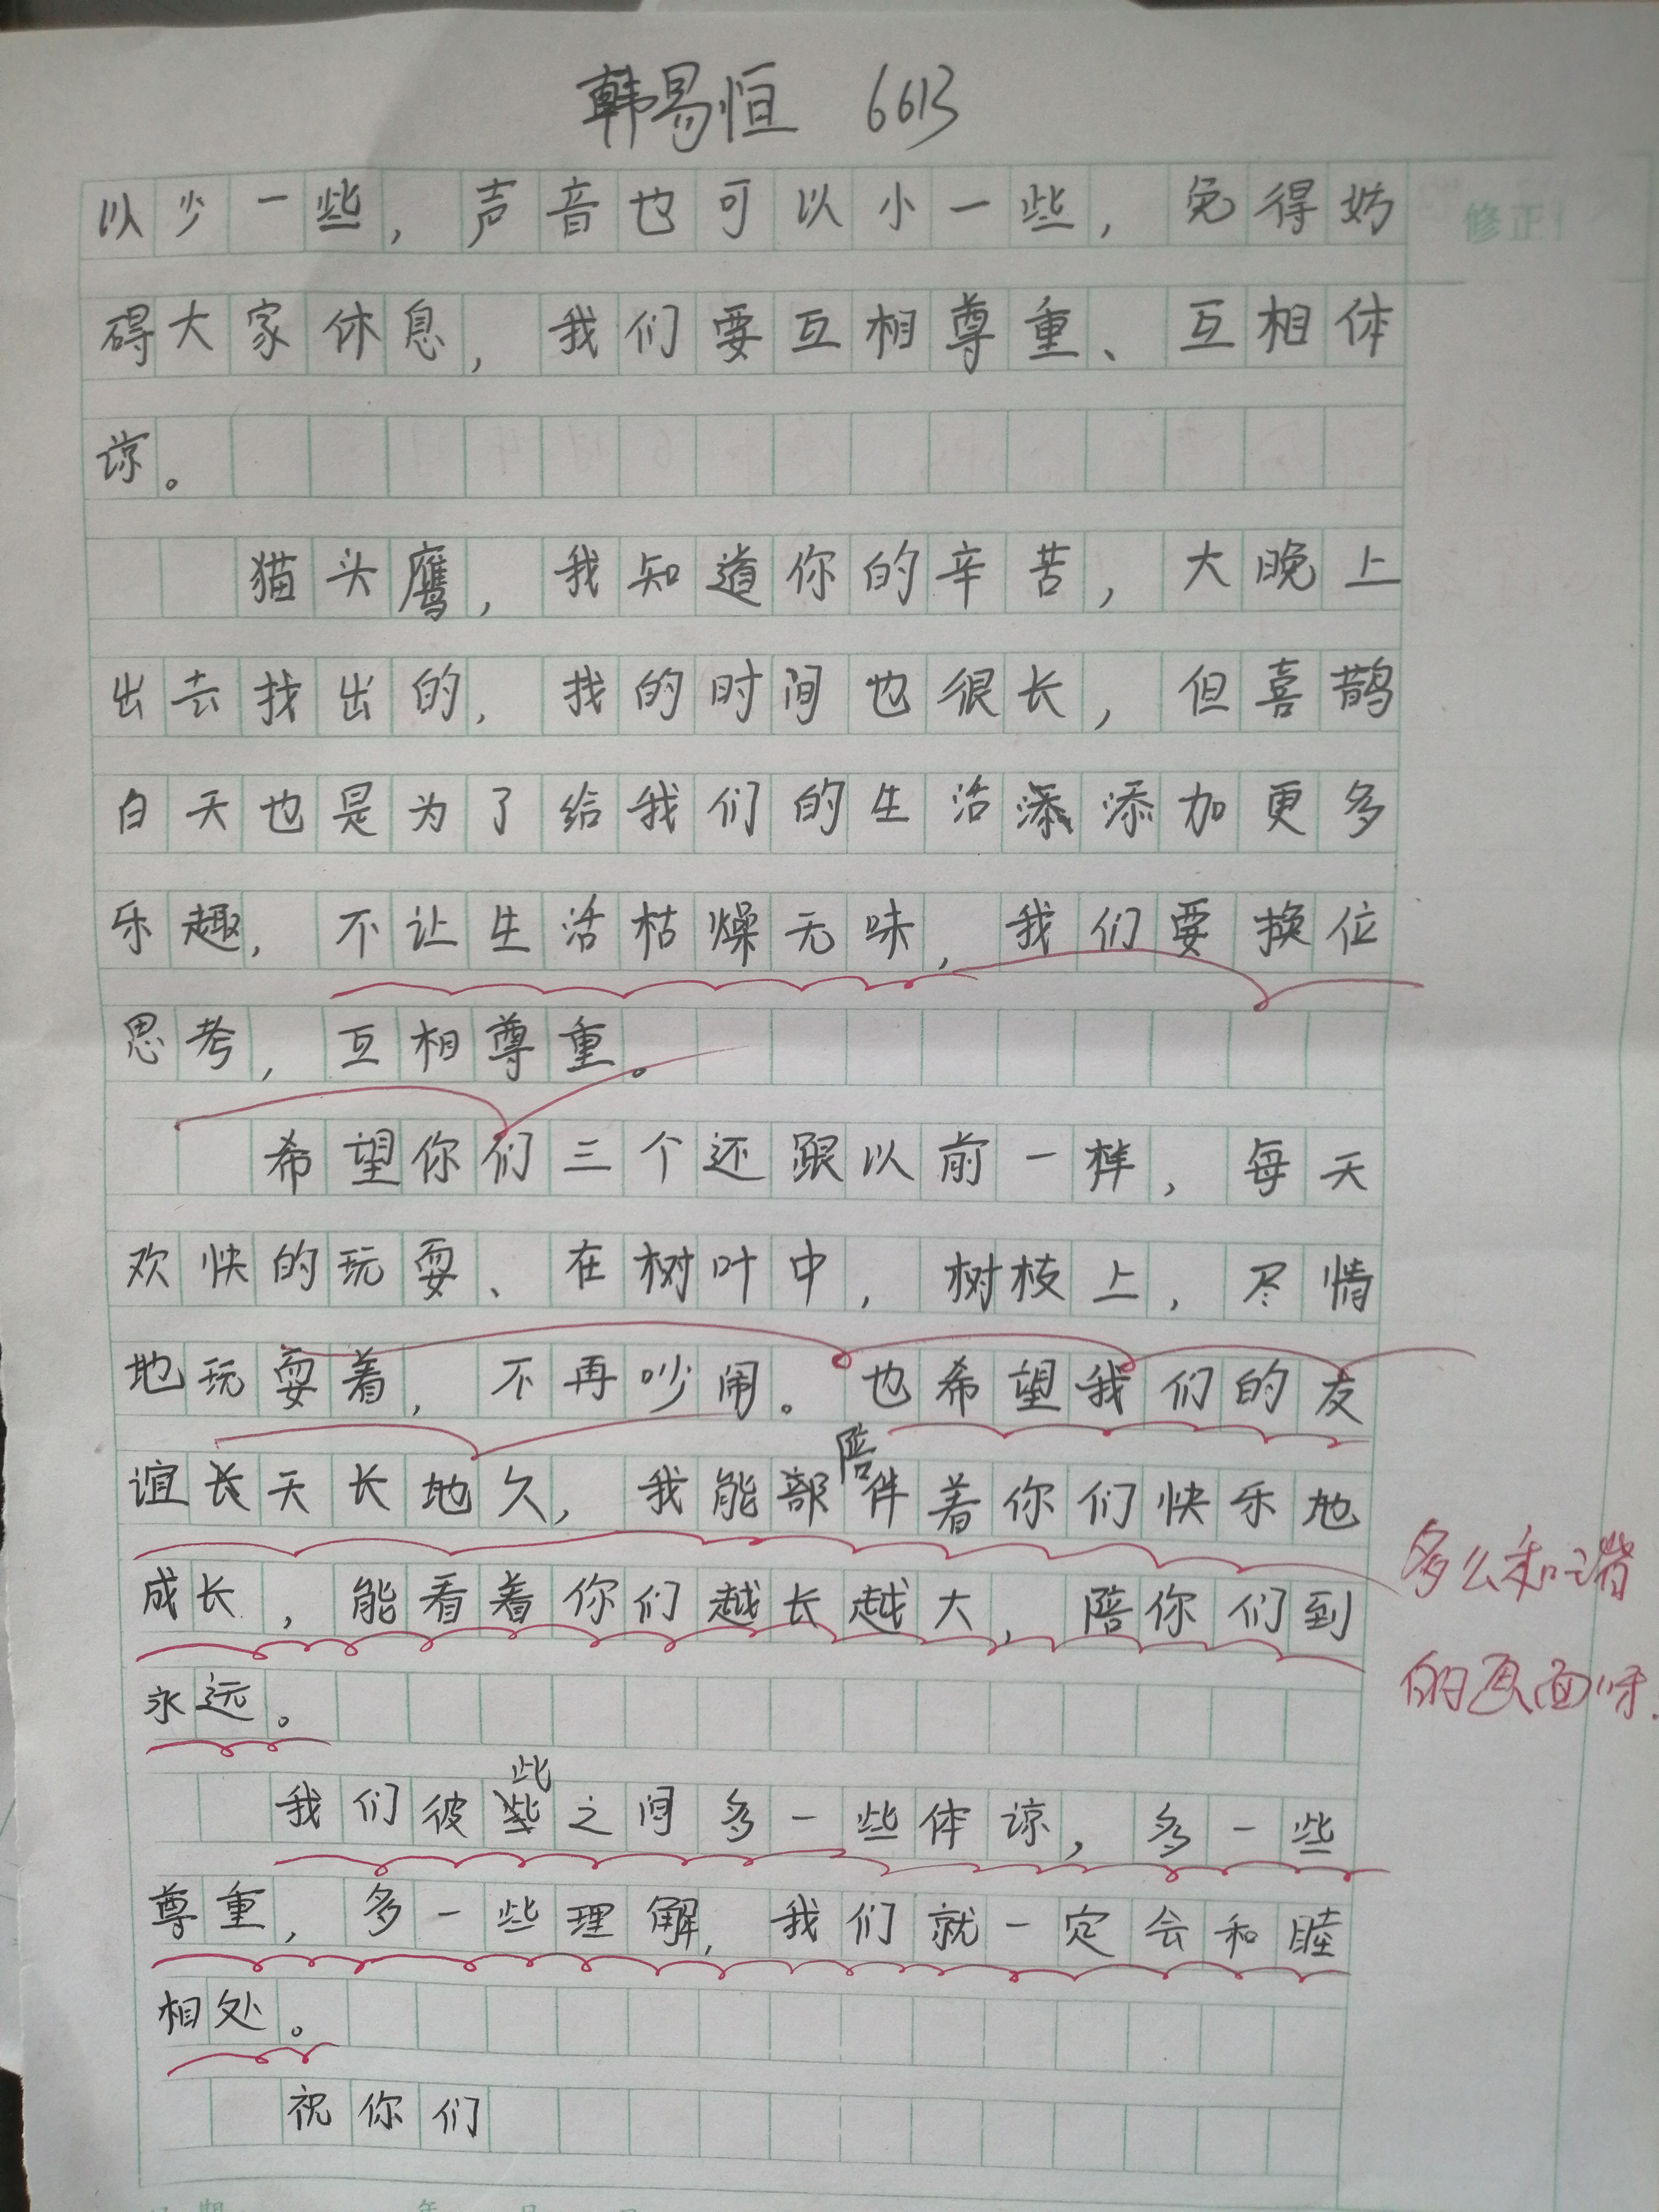 韩易恒 6613
以少一些，声音也可以小一些，免得妨
修正
碍大家休息，我们要互相尊重、互相体
谅。
猫头鹰，我知道你的辛苦，大晚上
出去找出的，找的时间也很长，但喜鹊
白天也是为了给我们的生活添加更多
乐趣，不让生活枯燥无味，我们要换位
思考，互相尊重。
希望你们三个还跟以前一样，每天
欢快的玩耍、在树叶中，树枝上，尽情
地玩耍着，不再吵闹。也希望我们的友
谊天长地久，我能陪伴着你们快乐地
成长，能看着你们越长越大，陪你们到
永远。
多么和谐
的画面呀.
我们彼此之间多一些体谅，多一些
尊重，多一些理解，我们就一定会和睦
相处。
祝你们